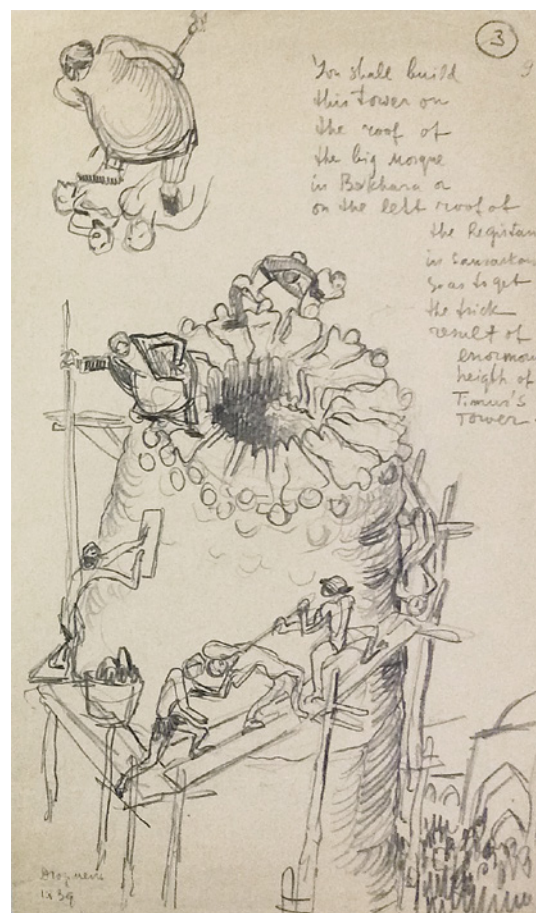 3
9
You shall build
this tower on
the roof of
the big Mosque
in Bokhara or
on the left roof of
the Registan
in Samarkan
so as to get
the trick
result of
enormou
heigth of
Timur's
Tower.
ix 39